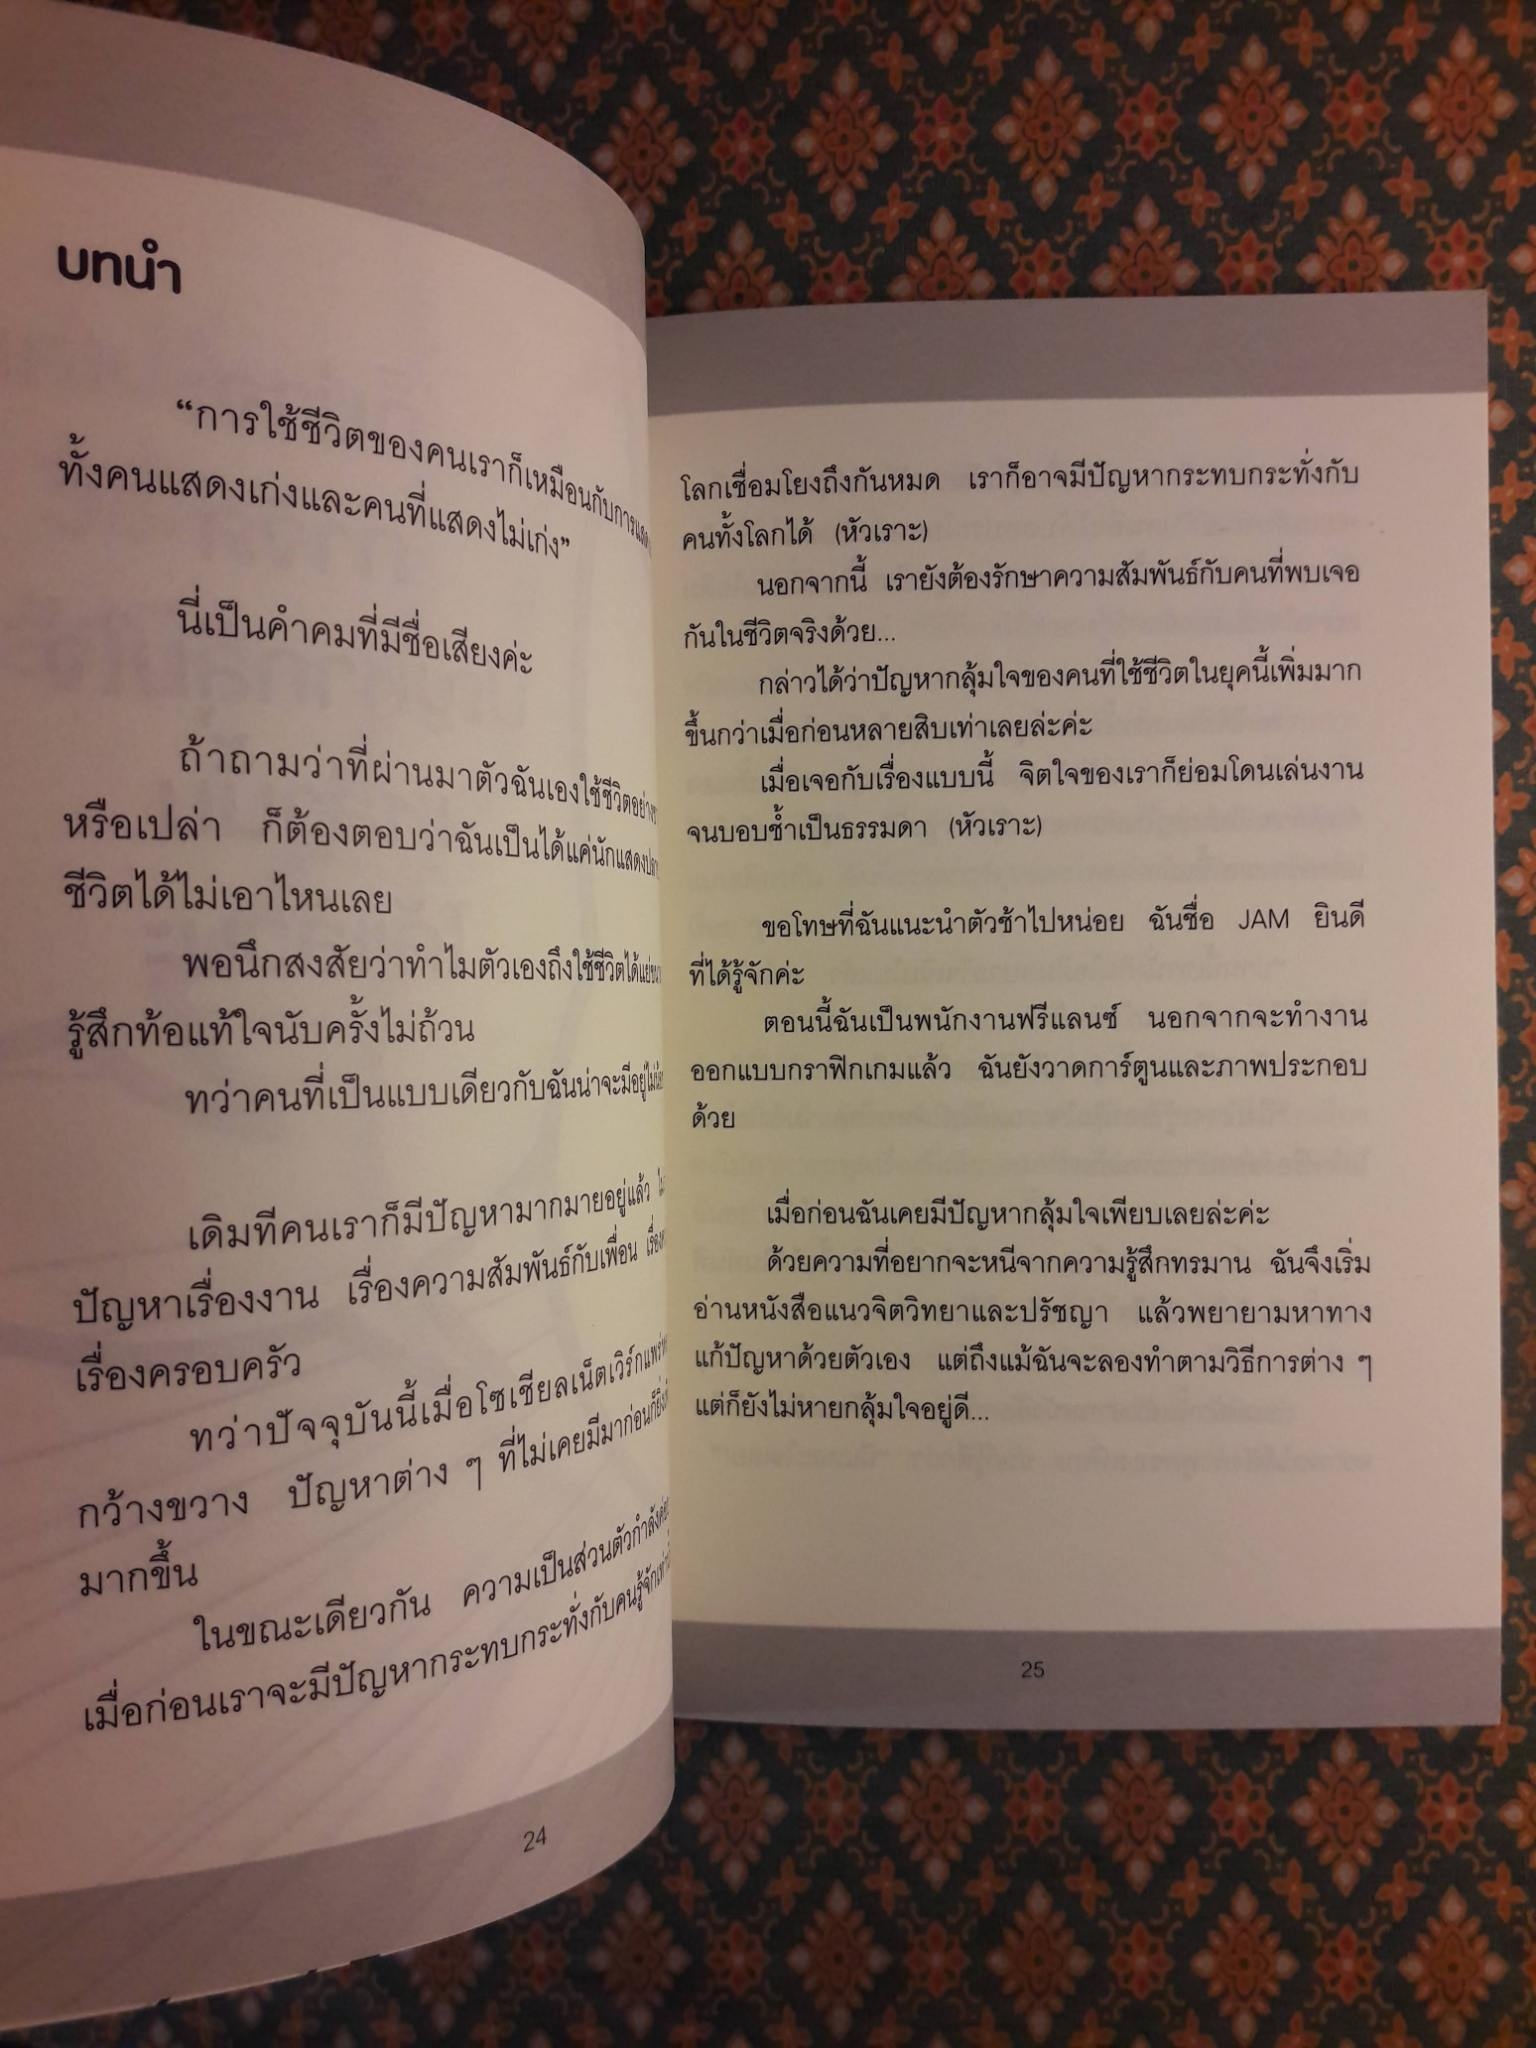 บทนำ
“การใช้ชีวิตของคนเราก็เหมือนกับการแสดง
ทั้งคนแสดงเก่งและคนที่แสดงไม่เก่ง”
นี่เป็นคำคมที่มีชื่อเสียงค่ะ
ถ้าถามว่าที่ผ่านมาตัวฉันเองใช้ชีวิตอย่าง
หรือเปล่า ก็ต้องตอบว่าฉันเป็นได้แค่นักแสดง
ชีวิตได้ไม่เอาไหนเลย
พอนึกสงสัยว่าทำไมตัวเองถึงใช้ชีวิตได้แย่
รู้สึกท้อแท้ใจนับครั้งไม่ถ้วน
ทว่าคนที่เป็นแบบเดียวกับฉันน่าจะมีอยู่
เดิมทีคนเราก็มีปัญหามากมายอยู่แล้ว
ปัญหาเรื่องงาน เรื่องความสัมพันธ์กับเพื่อน
เรื่องครอบครัว
ทว่าปัจจุบันนี้เมื่อโซเชียลเน็ตเวิร์กแพร่
กว้างขวาง ปัญหาต่าง ๆ ที่ไม่เคยมีมาก่อนก็ยิ่ง
มากขึ้น
ในขณะเดียวกัน ความเป็นส่วนตัวกำลัง
เมื่อก่อนเราจะมีปัญหากระทบกระทั่งกับคนรู้จัก
24
โลกเชื่อมโยงถึงกันหมด เราก็อาจมีปัญหากระทบกระทั่งกับ
คนทั้งโลกได้ (หัวเราะ)
นอกจากนี้ เรายังต้องรักษาความสัมพันธ์กับคนที่พบเจอ
กันในชีวิตจริงด้วย...
กล่าวได้ว่าปัญหากลุ้มใจของคนที่ใช้ชีวิตในยุคนี้เพิ่มมาก
ขึ้นกว่าเมื่อก่อนหลายสิบเท่าเลยล่ะค่ะ
เมื่อเจอกับเรื่องแบบนี้ จิตใจของเราก็ย่อมโดนเล่นงาน
จนบอบช้ำเป็นธรรมดา (หัวเราะ)
ขอโทษที่ฉันแนะนำตัวช้าไปหน่อย ฉันชื่อ JAM ยินดี
ที่ได้รู้จักค่ะ
ตอนนี้ฉันเป็นพนักงานฟรีแลนซ์ นอกจากจะทำงาน
ออกแบบกราฟิกเกมแล้ว ฉันยังวาดการ์ตูนและภาพประกอบ
ด้วย
เมื่อก่อนฉันเคยมีปัญหากลุ้มใจเพียบเลยล่ะค่ะ
ด้วยความที่อยากจะหนีจากความรู้สึกทรมาน ฉันจึงเริ่ม
อ่านหนังสือแนวจิตวิทยาและปรัชญา แล้วพยายามหาทาง
แก้ปัญหาด้วยตัวเอง แต่ถึงแม้ฉันจะลองทำตามวิธีการต่าง ๆ
แต่ก็ยังไม่หายกลุ้มใจอยู่ดี...
25